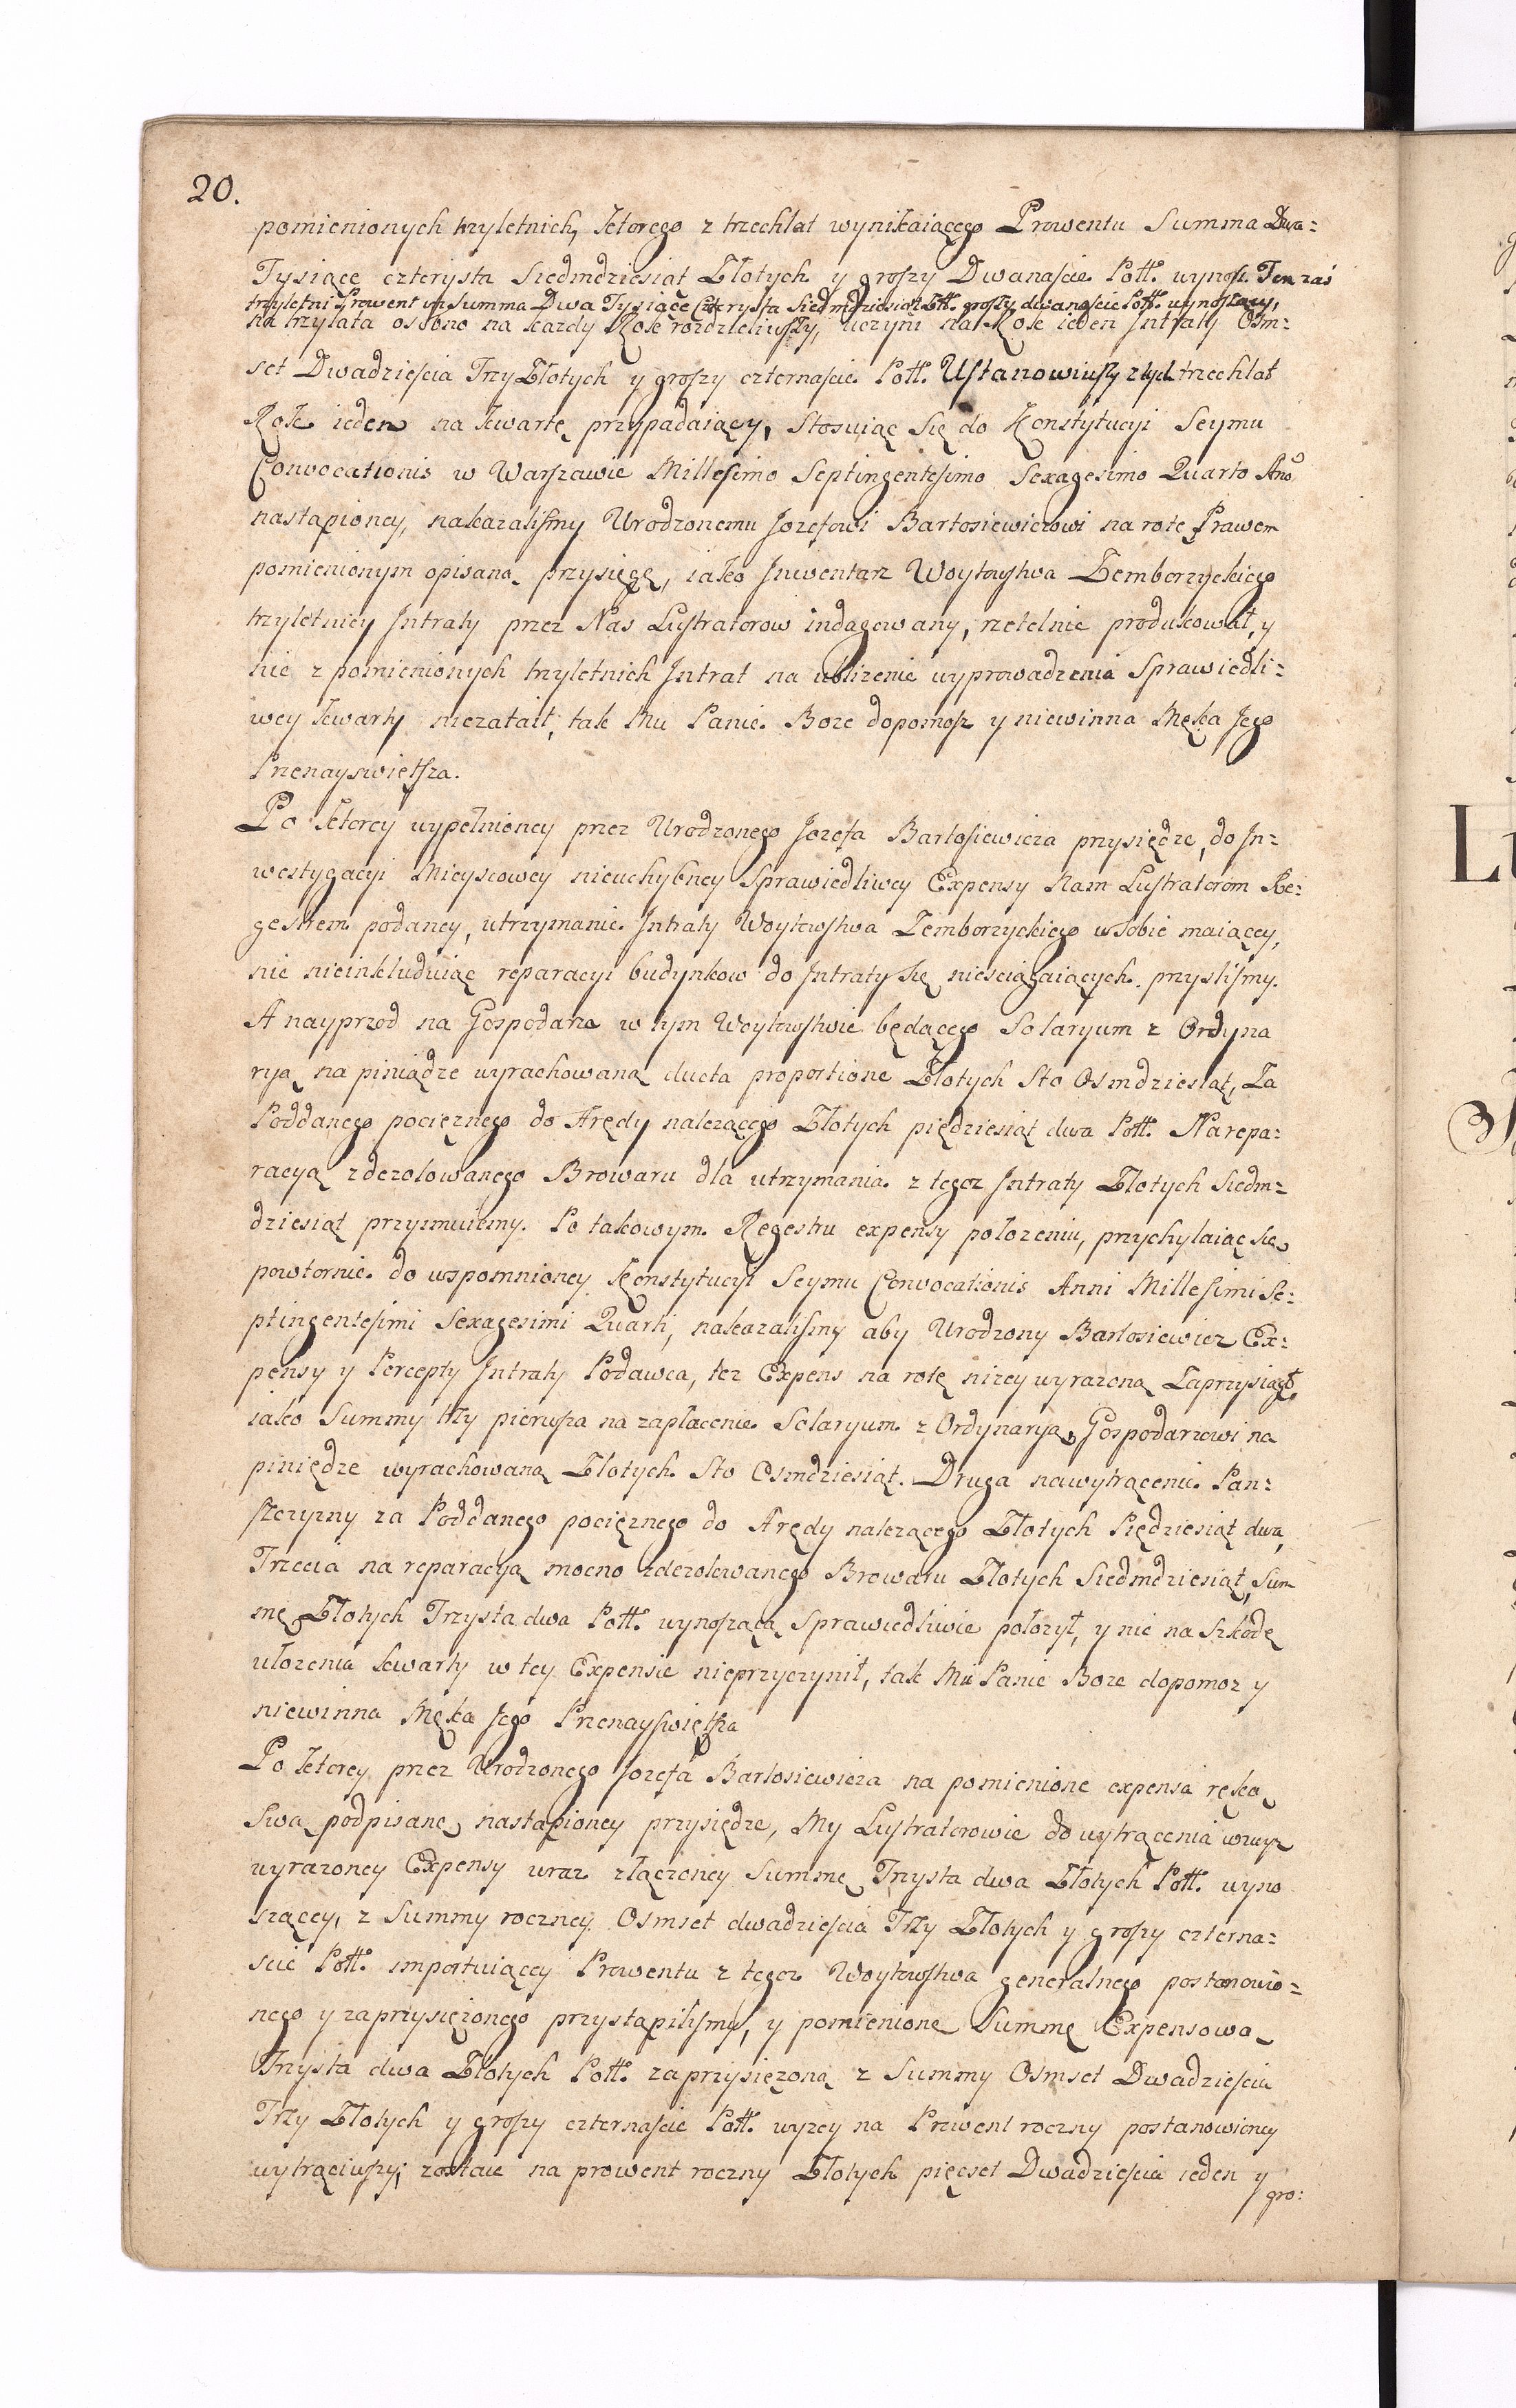 20.
pomienionych trzyletnich, ktorego z trzechlat wynikaiącego Prowentu Summa Dwa=
Tysiące czterysta Siedmdziesiąt Złotych y groszy Dwanaście Poll. wynosi. Ten zaś
trzyletni Prowent in Summa Dwa Tysiące Czterysta Siedmdziesiąt Złł. groszy dwanaście Poll. wynoszący,
na trzylata osobno na kazdy Rok rozdzieliwszy, uczyni na Rok ieden Intraty Osm=
set Dwadzieścia Trzy Złotych y groszy czternaście Poll. Ustanowiwszy z tych trzechlat
Rok ieden na kwartę przypadaiący, Stosuiąc Się do Konstytucyi Seymu
Convocationis w Warszawie Millesimo Septingentesimo Sexagesimo Quarto Año
nastąpioney, nakazaliśmy Urodzonemu Jozefowi Bartosiewiczowi na rotę Prawem
pomienionym opisaną przysięgę, iako Inwentarz Woytowstwa Zemborzyckiego
trzyletniey Intraty przez Nas Lustratorow indagowany, rzetelnie produkował, y
nic z pomienionych trzyletnich Intrat na ubliżenie wyprowadzenia Sprawiedli=
wey kwarty niezataił, tak Mu Panie Boze dopomosz y niewinna Męka Jego
Przenayswiętsza.
Po ktorey wypełnioney przez Urodzonego Jozefa Bartosiewicza przysiędze, do In=
westygacyi Mieyscowey nieuchybney Sprawiedliwey Expensy Nam Lustratorom Re=
gestrem podaney, utrzymanie Intraty Woytowstwa Zemborzyckiego w sobie maiącey,
nic nieinkluduiąc reparacyi budynkow do Intraty się niesciągaiących przyśliśmy.
A nayprzod na Gospodarza w tym Woytowstwie będącego Solaryum z Ordyna
ryą na piniądze wyrachowaną ducta proportione Złotych Sto Osmdziesiąt, Za
Poddanego pocięznego do Arędy nalezącego Złotych piędziesiąt dwa Poll. Na repa=
racyą zdezolowanego Browaru dla utrzymania z tegoz Intraty Złotych Siedm=
dziesiąt przyimuiemy. Po takowym Regestru expensy położeniu, przychylaiąc się
powtornie do wspomnioney Konstytucyi Seymu Convocationis Anni Millesimi Se=
ptingentesimi Sexagesimi Quarti, nakazaliśmy aby Urodzony Bartosiewicz Ex=
pensy y Percepty Intraty Podawca, tez Expens na rotę nizey wyrazoną Zaprzysiągł,
iako Summy trzy pierwsza na zapłacenie Solaryum z Ordynaryą Gospodarzowi na
piniędze wyrachowaną Złotych Sto Osmdziesiąt. Druga na wytrącenie Pan=
szczyzny za Poddanego pocięznego do Arędy nalezącego Złotych Piędziesiąt dwa,
Trzecia na reparacyą mocno zdezolowanego Browaru Złotych Siedmdziesiąt, Sum
mę Złotych Trzysta dwa Poll. wynoszącą Sprawiedliwie położył, y nic na Szkodę
ułozenia kwarty w tey Expensie nieprzyczynił, tak Mu Panie Boze dopomoz y
niewinna Męka Jego Przenayświętsza
Po ktorey przez Urodzonego Jozefa Bartosiewicza na pomienione expensa ręką
Swą podpisane, nastąpioney przysiędze, My Lustratorowie do wytrącenia wzwyz
wyrazoney Expensy wraz złączoney Summę Trzysta dwa Złotych Poll. wyno
szącey, z Summy roczney Osmset dwadzieścia Trzy Złotych y groszy czterna=
scie Poll. importuiącey Prowentu z tegoz Woytowstwa generalnego postanowio=
nego y zaprzysięzonego przystąpiliśmy, y pomienioną Summę Expensową
Trzysta dwa Złotych Poll. zaprzysięzoną z Summy Osmset Dwadzieścia
Trzy Złotych y groszy czternaście Poll. wyzey na Prowent roczny postanowioney
wytrąciwszy; zostaie na prowent roczny Złotych pięcset Dwadzieścia ieden y
gro: